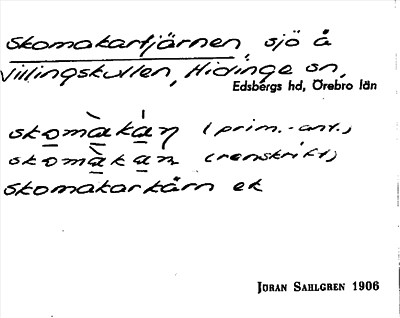 Skomakartjärnen, sjö å
Villingskullen, Hidinge sn,
Edsbergs hd, Örebro län
skomàkáŋ (prim.-ant.)
skomàkan (renskrift)
Skomakarkärn ek
JÖRAN SAHLGREN 1906